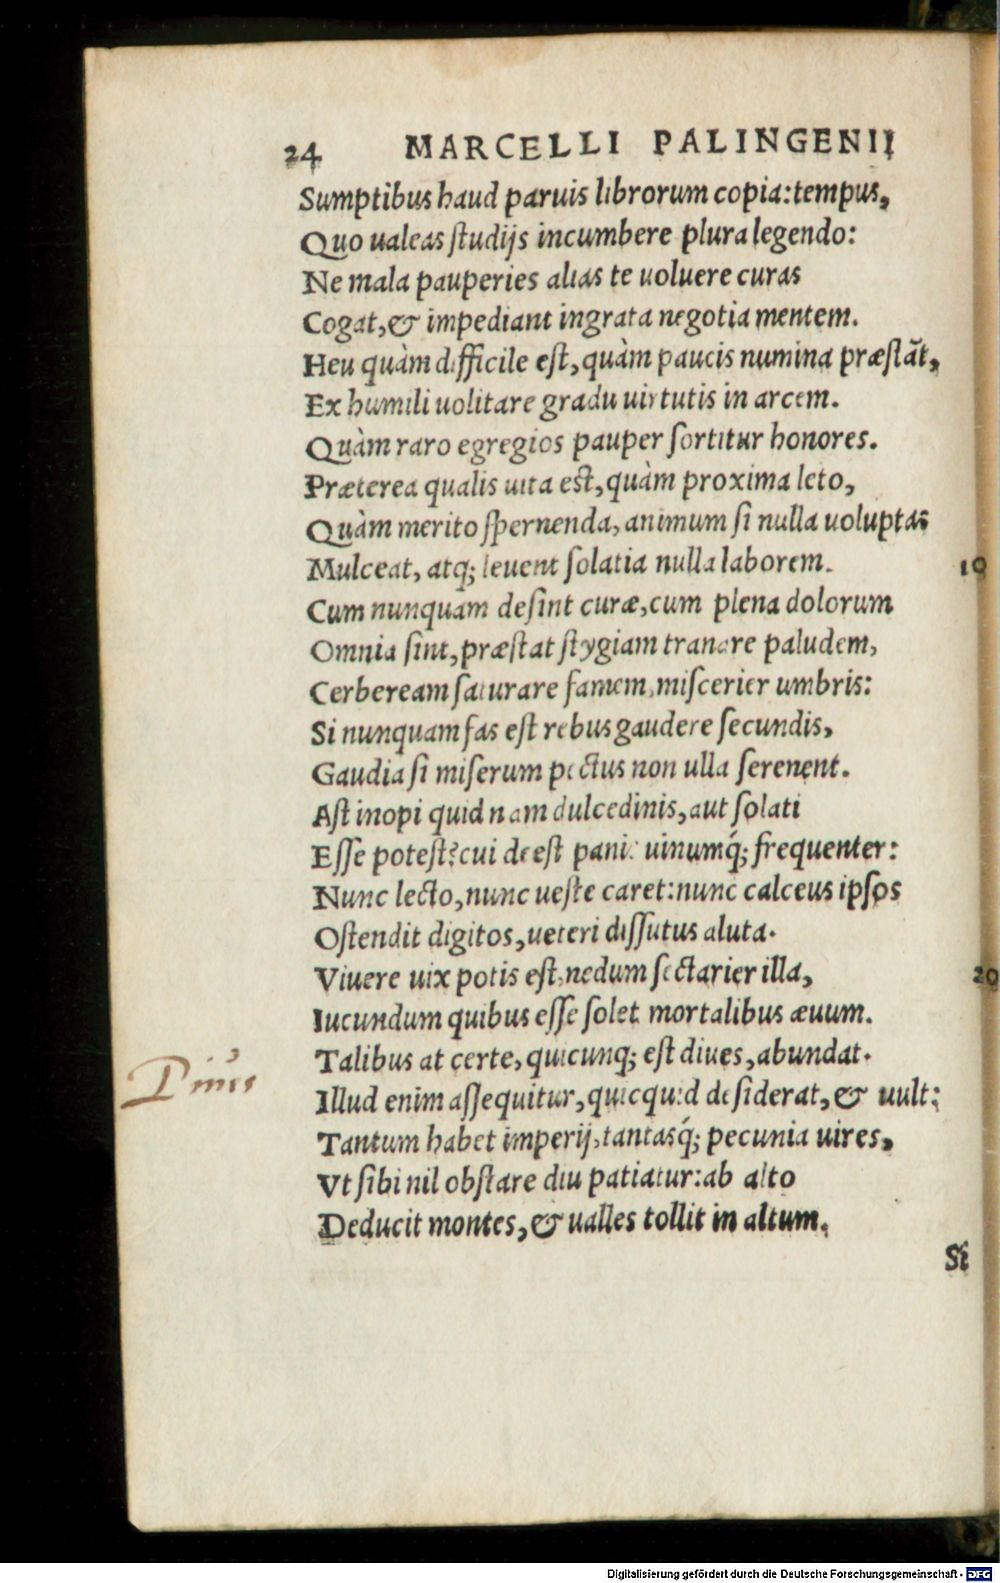 24 MARCELLI PALINGENII
Sumptibus haud paruis librorum copia: tempus,
Quo ualeas ſtudijs incumbere plura legendo:
Ne mala pauperies alias te uoluere curas
Cogat, & impediant ingrata negotia mentem.
Heu quàm difficile eſt, quàm paucis numina præſtāt,
Ex humili uolitare gradu uirtutis in arcem.
Quàm raro egregios pauper ſortitur honores.
Præterea qualis uita eſt, quàm proxima leto,
Quàm merito ſpernenda, animum ſi nulla uoluptas
Mulceat, atq; leuent ſolatia nulla laborem. 10
Cum nunquam deſint curæ, cum plena dolorum
Omnia ſint, præſtat ſtygiam tranare paludem,
Cerbeream ſaturare famem, miſcerier umbris:
Si nunquam fas eſt rebus gaudere ſecundis,
Gaudia ſi miſerum pectus non ulla ſerenent.
Aſt inopi quid nam dulcedinis, aut ſolati
Eſſe poteſt? cui deeſt panis uinumq́; frequenter:
Nunc lecto, nunc ueſte caret: nunc calceus ipſos
Oſtendit digitos, ueteri diſſutus aluta.
Viuere uix potis eſt, nedum ſectarier illa, 20
Iucundum quibus eſſe ſolet mortalibus æuum.
Talibus at certe, quicunq; eſt diues, abundat.
Illud enim aſſequitur, quicquid deſiderat, & uult:
Tantum habet imperij, tantasq́; pecunia uires,
Vt ſibi nil obſtare diu patiatur: ab alto
Deducit montes, & ualles tollit in altum.
Si
Digitalisierung gefördert durch die Deutsche Forschungsgemeinschaft - DFG